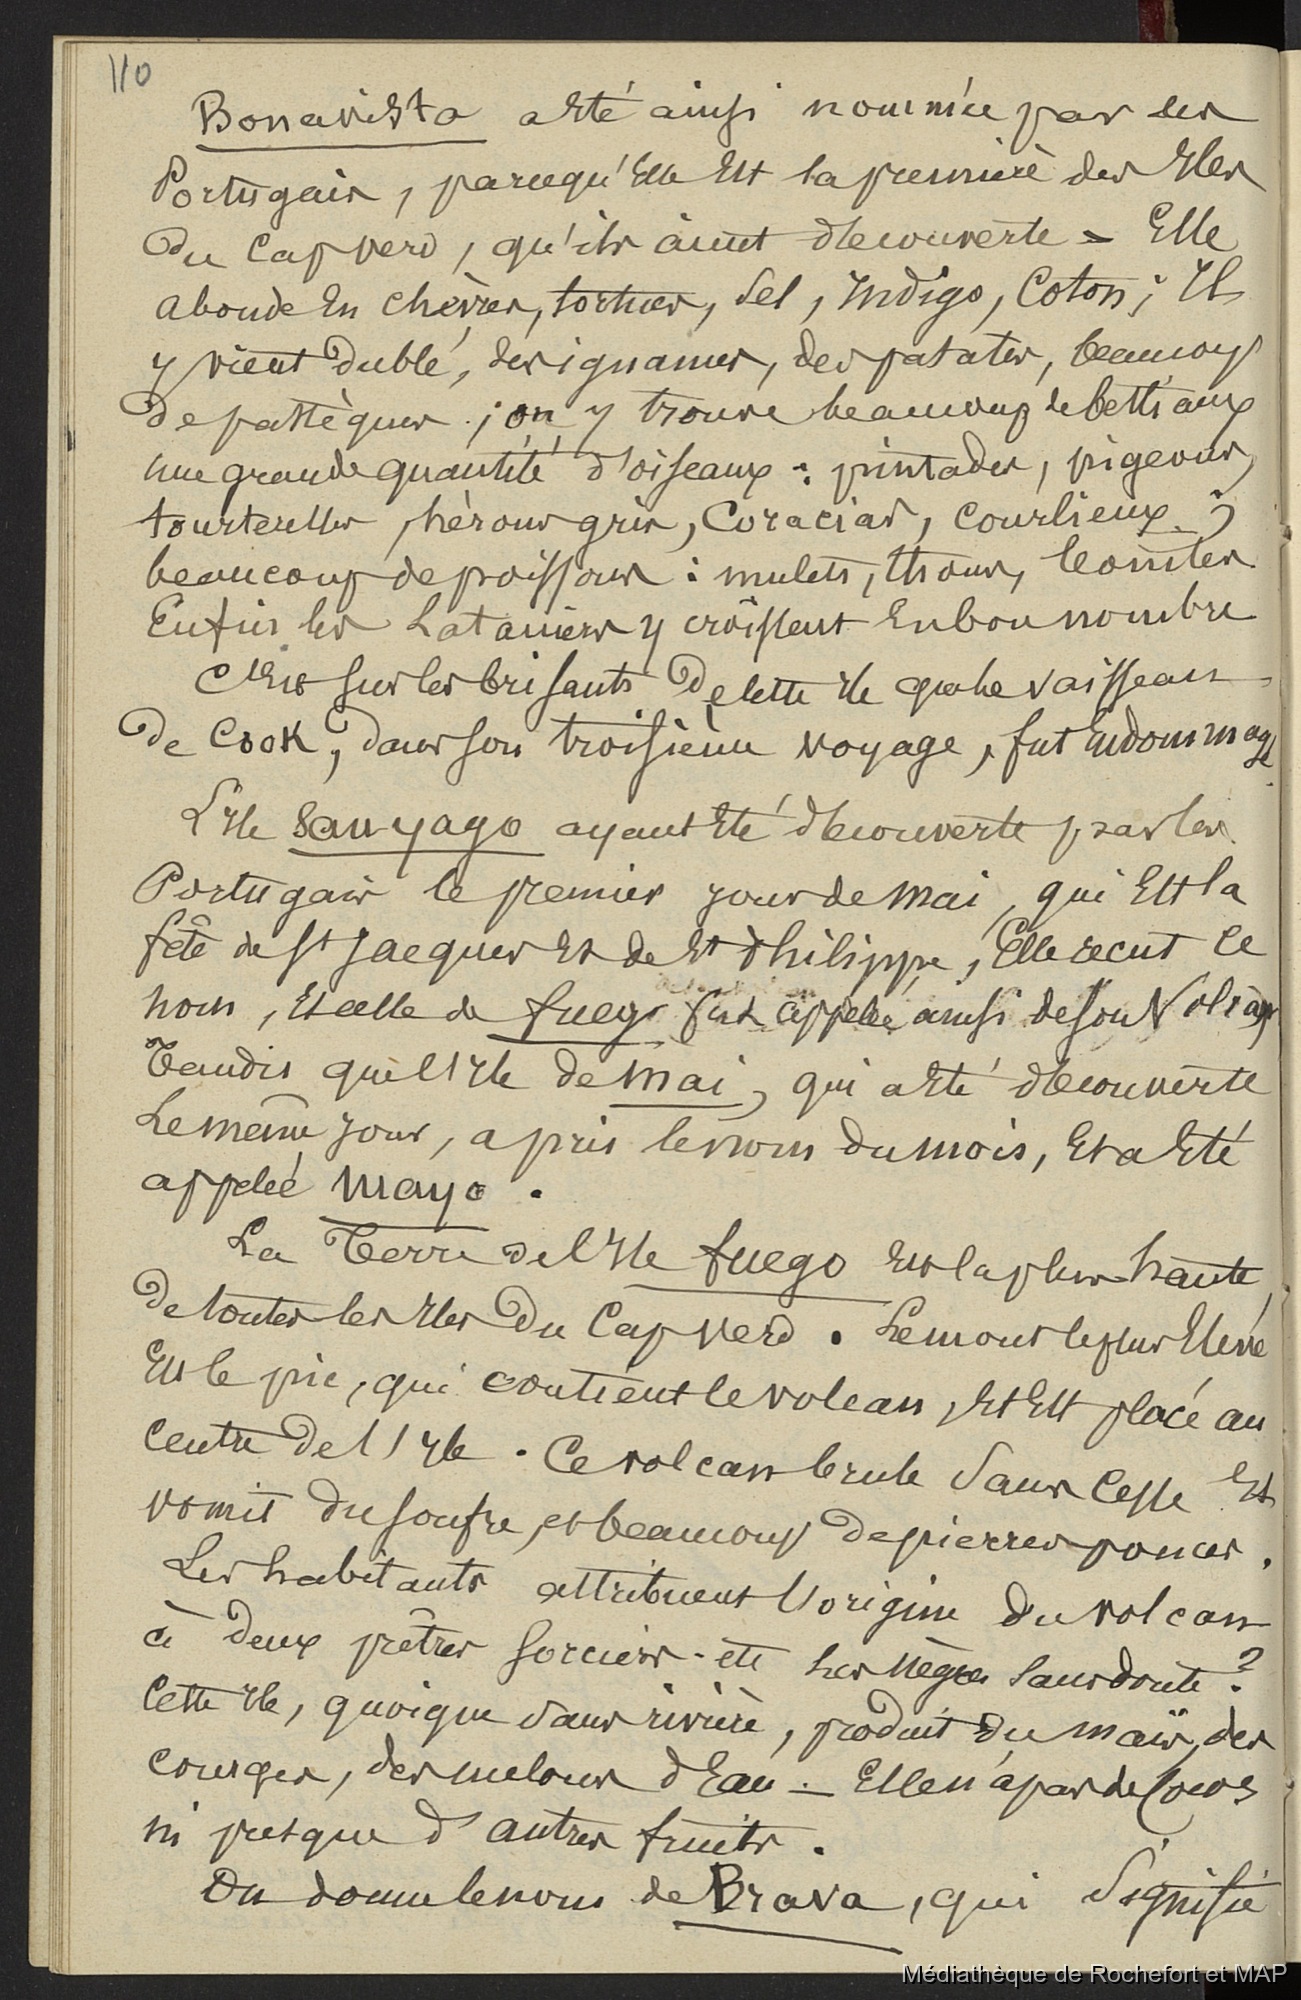 110
Bonavista a été ainsi nommée par les
Portugais, parcequ'Elle Est la première des Iles
du Cap verd, qu'ils aient découverte - Elle
abonde En chèvres, tortues, Sel, Indigo, Coton; Il
y vient du blé, des ignames, des patates, beaucoup
de pastèques; on y trouve beaucoup de bestiaux
une grande quantité d'oiseaux: pintades, pigeons,
tourterelles, hérons gris, Coracias, Courlieux;
beaucoup de poissons: mulets, thons, bonites
Enfin les Lataniers y croissent En bon nombre
C'est sur les brisants de cette Ile que le vaisseau
de Cook, dans son troisième voyage, fut Endommagé.
L'Ile San-yago ayant Eté découverte par les
Portugais le premier jour de Mai, qui Est la
fête de St Jacques Et de St Philippe, Elle reçut ce
nom, Et celle de fuego fut appelée ainsi de son Volcan,
Tandis que l'Ile de Mai, qui a Eté découverte
Le même jour, a pris le nom du mois, Et a Eté
appelée Mayo.
La Terre de l'Ile fuego Est la plus haute,
De toutes les Iles Du Cap Verd. Le mont le plus Elevé
Est le pic, qui contient le volcan, Et Est placé au
Centre de l'Ile. Ce volcan brule Sans Cesse Et
vomit du soufre, et beaucoup de pierres ponces.
Les habitants attribuent l'origine du volcan
à deux prêtres sorciers - etc Les Nègres sans doute?
Cette Ile, quoique Sans rivière, produit Du Maïs, des
Courges, des melons d'Eau - Elle n'a pas de Cocos
ni presque d'autres fruits.
On donne le nom de Brava, qui Signifie
Médiathèque de Rochefort et MAP